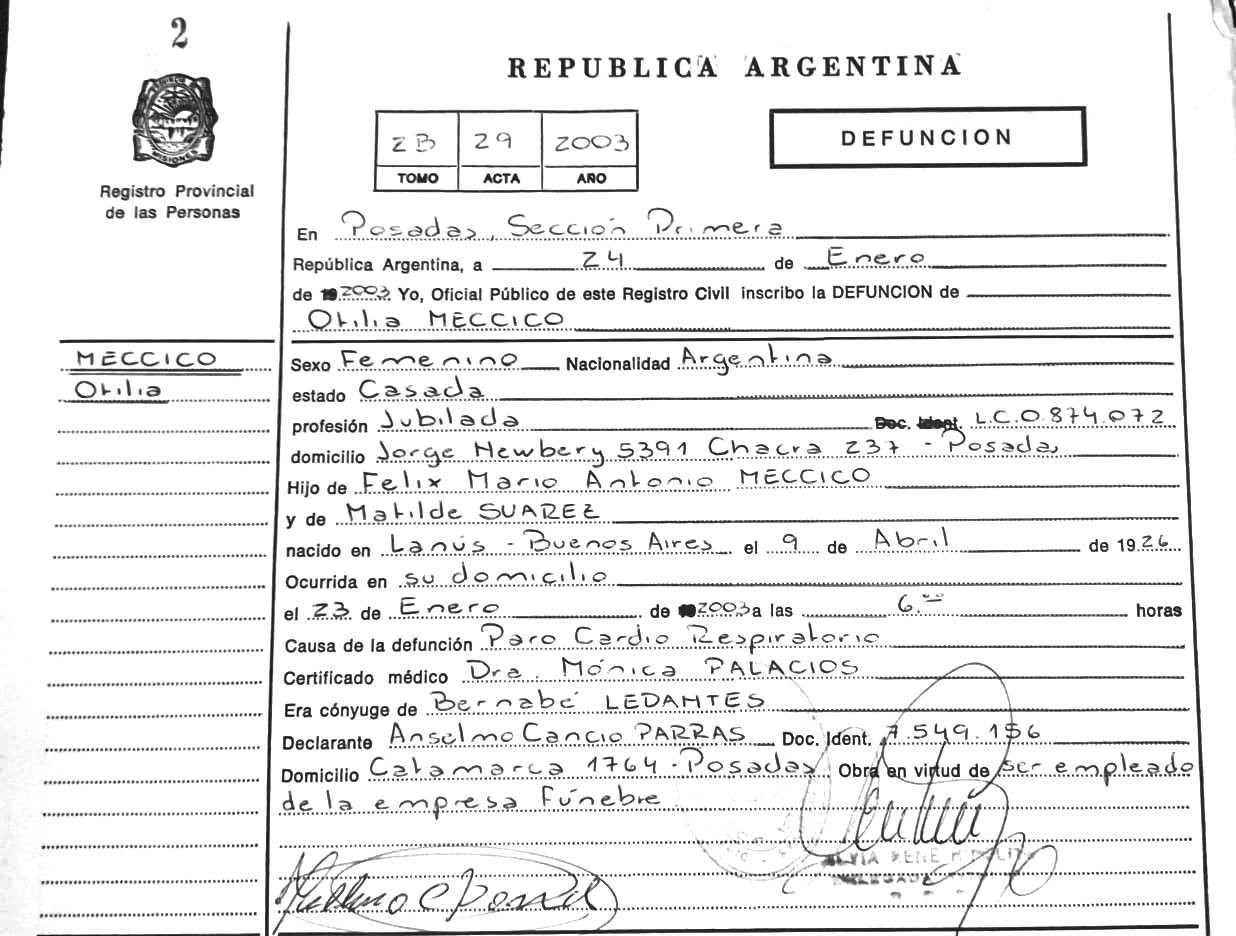 2
REPUBLICA ARGENTINA
MISIONES
2B 29 2003
TOMO ACTA AÑO
DEFUNCION
Registro Provincial
de las Personas
En Posadas, Sección Primera
República Argentina, a 24 de Enero
de 2003 Yo, Oficial Público de este Registro Civil inscribo la DEFUNCION de
Otilia MECCICO
MECCICO
Otilia
Sexo Femenino Nacionalidad Argentina
estado Casada
profesión Jubilada Doc. Ident. L.C.0.874.072
domicilio Jorge Newbery 5391 Chacra 237 - Posadas
Hijo de Felix Mario Antonio MECCICO
y de Matilde SUAREZ
nacido en Lanús - Buenos Aires el 9 de Abril de 1926
Ocurrida en su domicilio
el 23 de Enero de 2003 a las 6.00 horas
Causa de la defunción Paro Cardio Respiratorio
Certificado médico Dra. Mónica PALACIOS
Era cónyuge de Bernabé LEDANTES
Declarante Anselmo Cancio PARRAS Doc. Ident. 7.549.156
Domicilio Catamarca 1764 - Posadas Obra en virtud de ser empleado
de la empresa Fúnebre